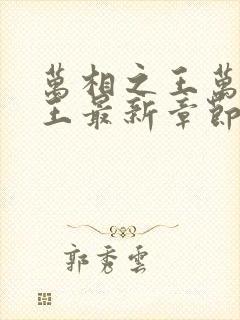 萬相之王萬
王最新章節
郭秀雲